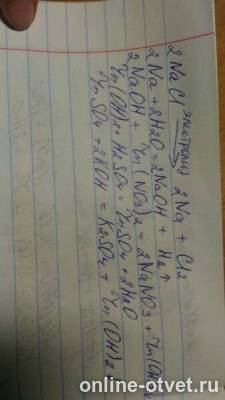 2 NaCl электролиз→ 2Na + Cl2
2Na + 2H2O = 2NaOH + H2↑
2NaOH + Zn(NO3)2 = 2NaNO3 + Zn(OH)
Zn(OH)2 + H2SO4 = ZnSO4 + 2H2O
ZnSO4 + 2KOH = K2SO4 + Zn(OH)2
online-otvet.ru